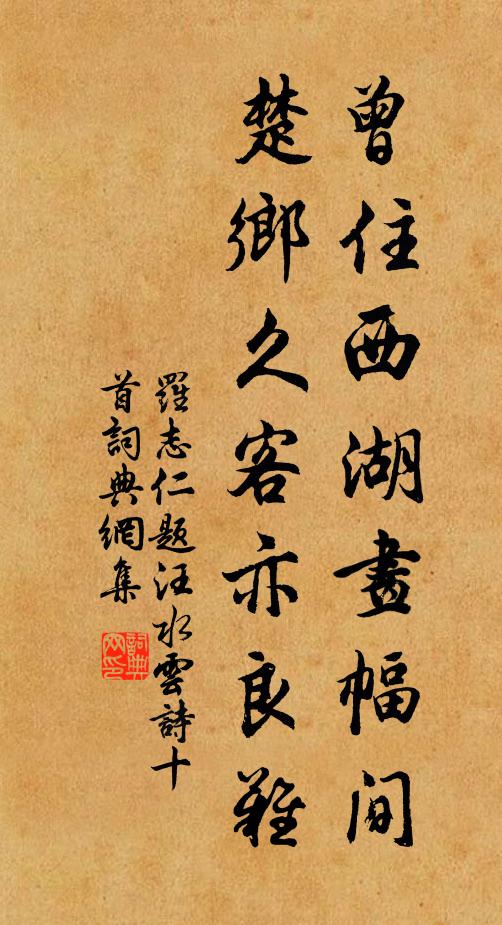 曾住西湖畫幅間
楚鄉久客亦良難
羅志仁題汪水雲詩十
首詞典網集
詞典
网印